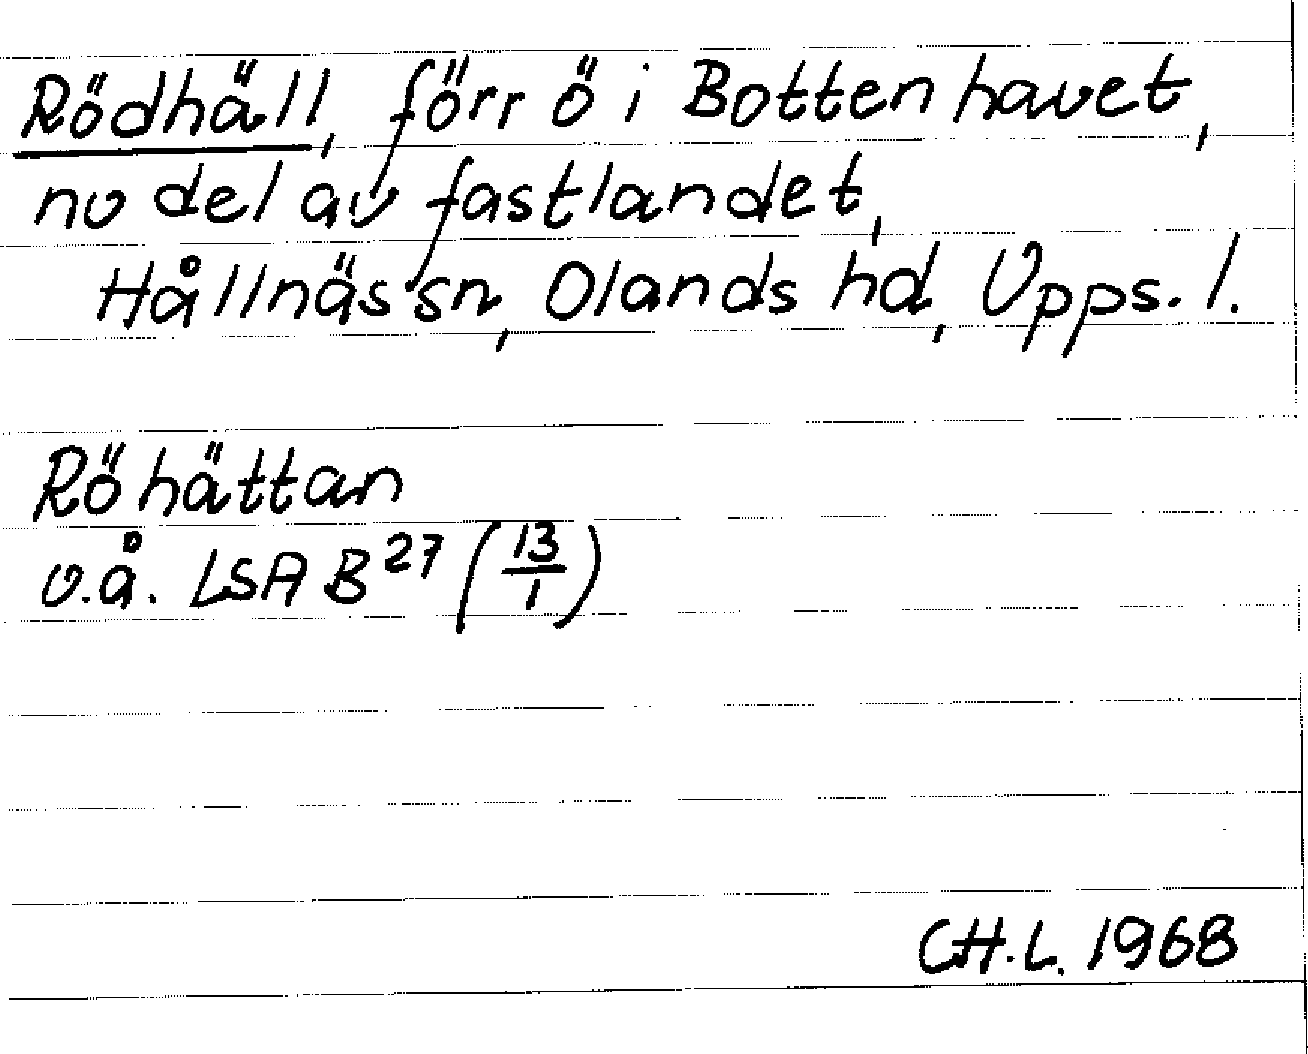 Rödhäll, förr ö i Bottenhavet,
nu del av fastlandet,
Hållnäs sn, Olands hd, Upps. l.
Röhättan
u.å. LSA B 27 (13/1)
CH.L. 1968